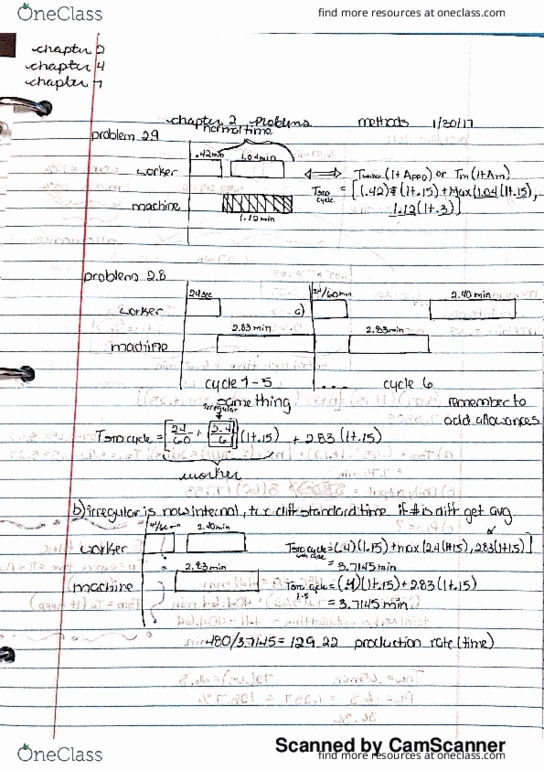 OneClass
find more resources at oneclass.com
chapter 2
chapter 4
chapter 7
chapter 2 Problems methods 1/30/17
problem 2.9
normal time
.42min 1.04min
worker
machine
1.12min
(1+Am)
[(.42)(1+.15)+Max(1.04(1+.15),
1.12(1+.3)]
problem 2.8
24sec 24/60min 2.40min
worker a)
2.83min 2.83min
machine
cycle 1-5 .... cycle 6
something
irregular
remember to
add allowances
Tstd cycle = [24/60 + 2.4/6](1+.15) + 2.83(1+.15)
worker
b) irregular is now internal, diff standard time if it is diff get avg
24/60min 2.40min
worker
2.83min
machine
=(.4)(1.15)+max(2.4(1+.15), 2.83(1+.15)]
= 3.7145min
Tstd cycle=(.4)(1+.15)+2.83(1+.15)
1-5
= 3.7145 min
480/3.7145=129.22 production rate(time)
Scanned by CamScanner
OneClass
find more resources at oneclass.com